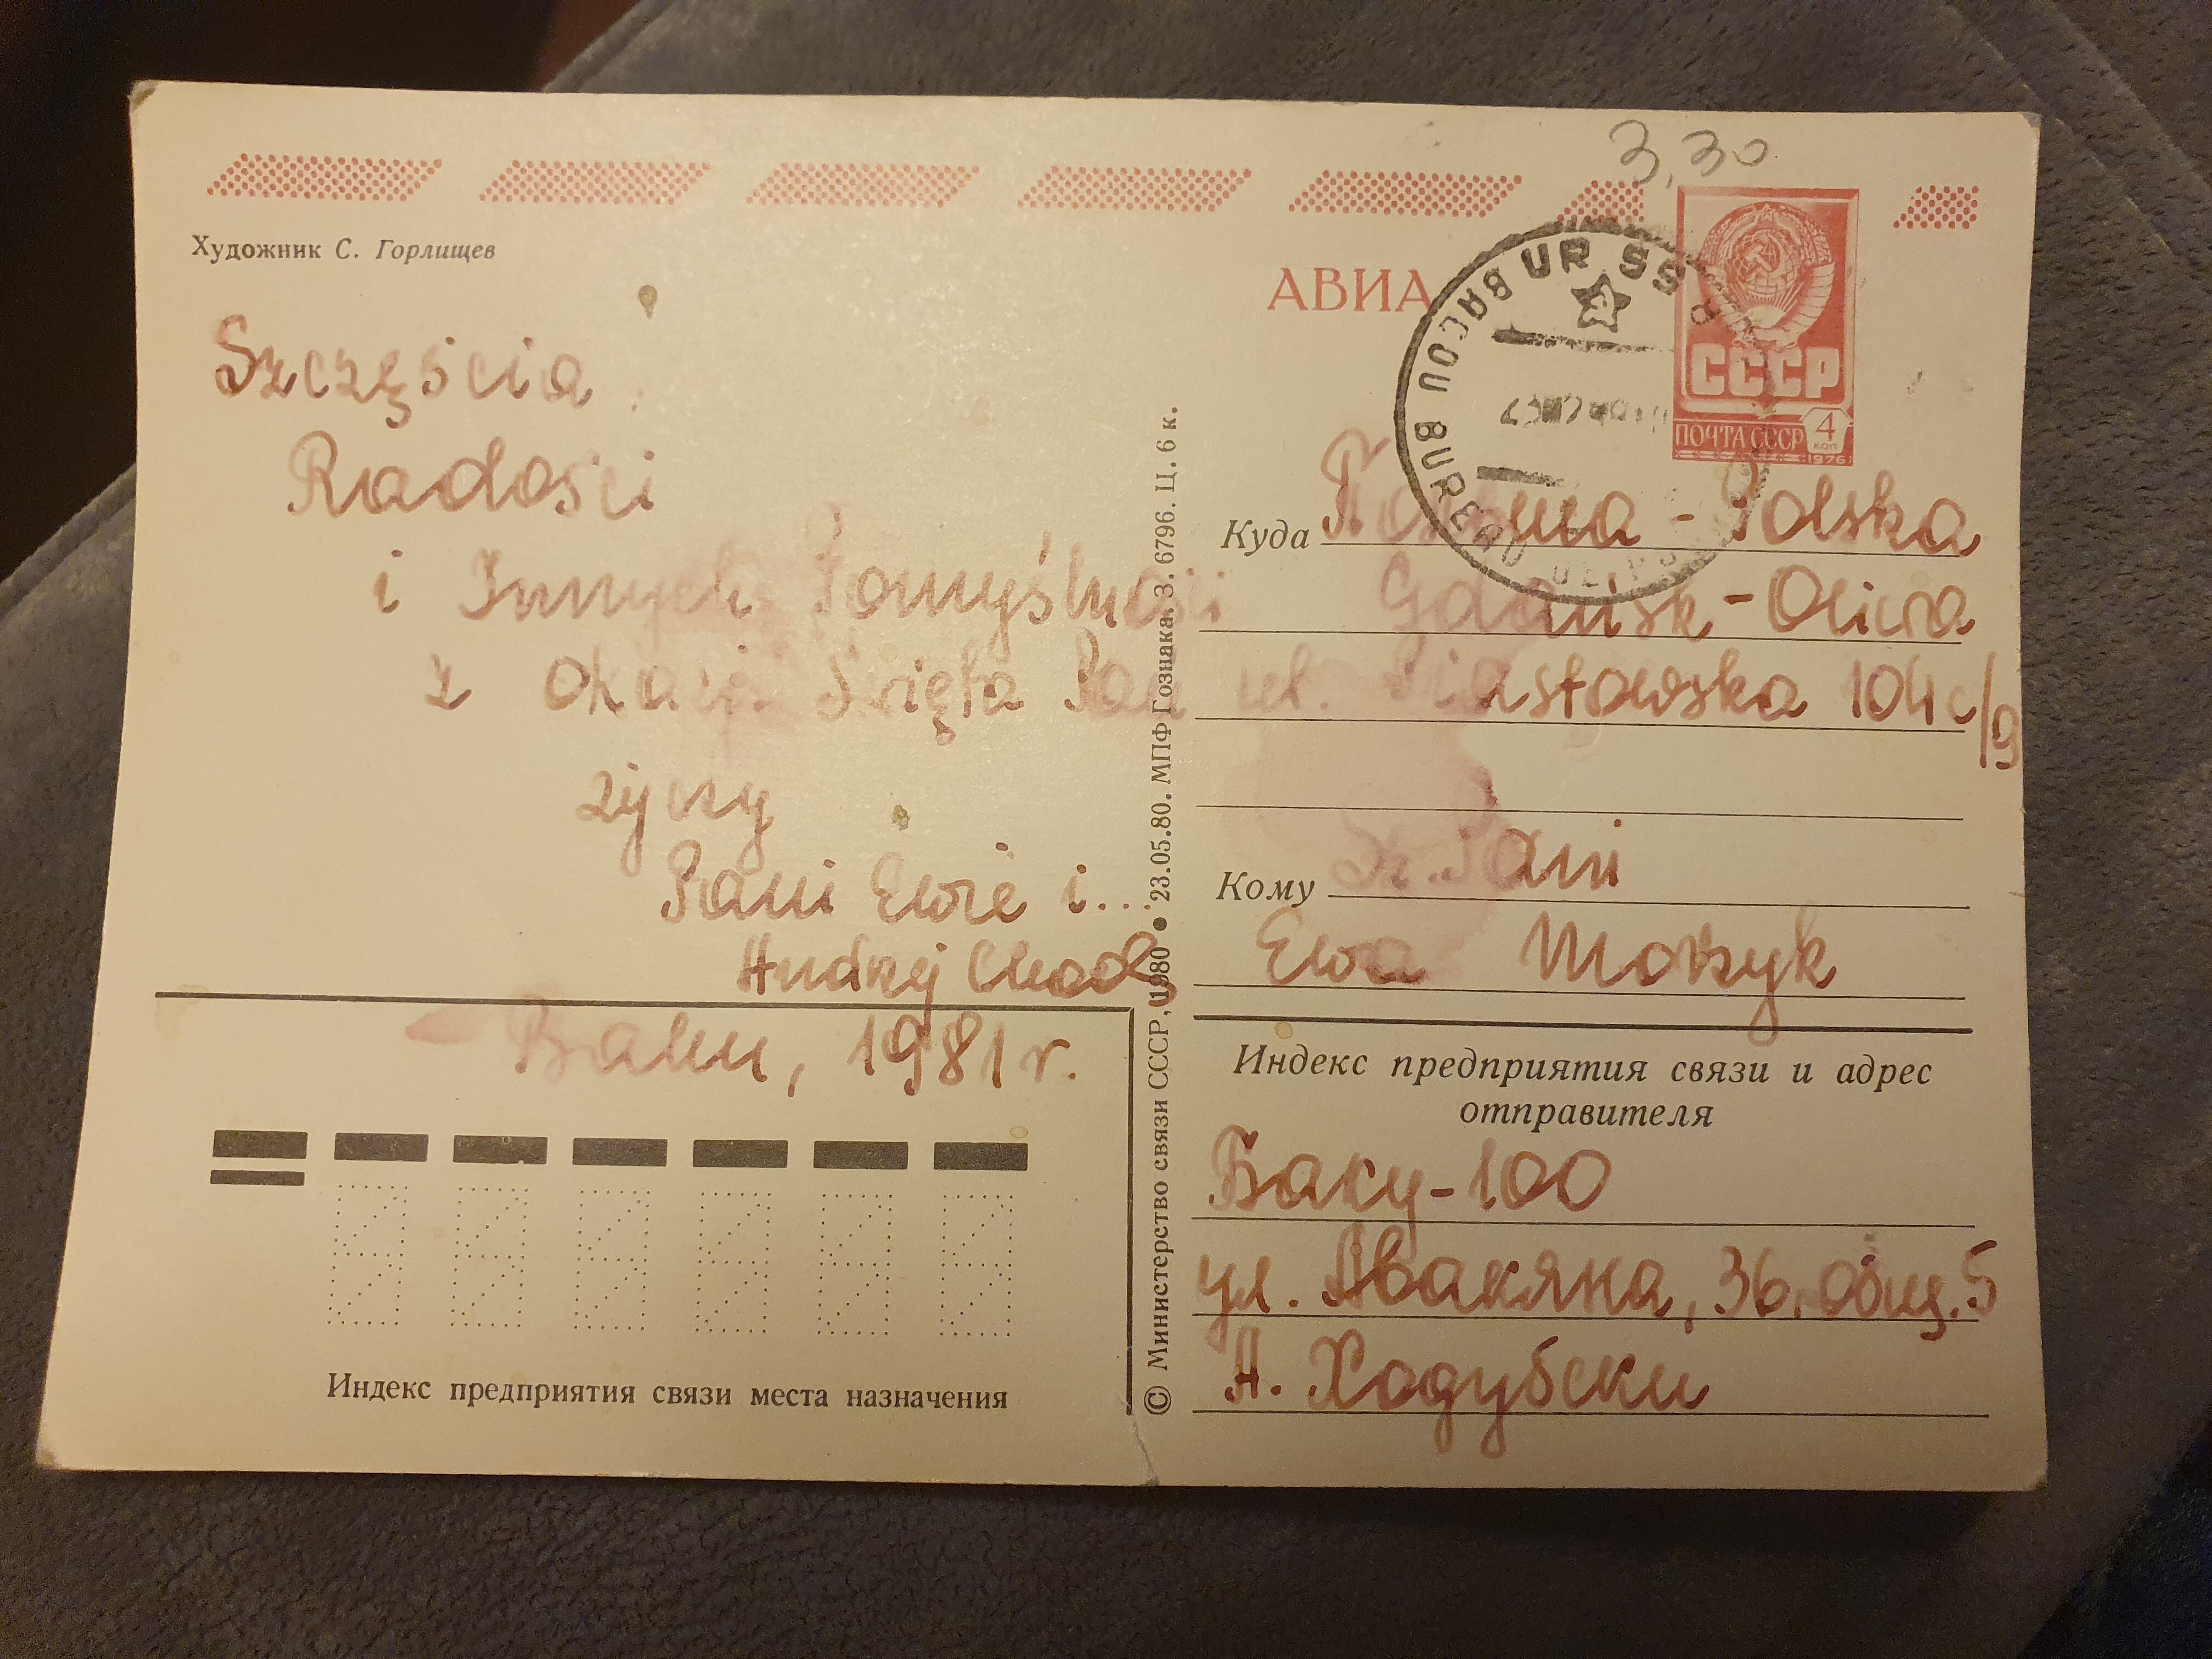 3,30
Художник С. Горлищев
АВИА
BACOU UR SS
СССР
ПОЧТА СССР 4 КОП
1976
Szczęścia
Radości
i Innych Pomyślności
z okazji Święta Pań
życzy
Pani Ewie i...
Andrzej Chod
Baku, 1981 r.
Индекс предприятия связи места назначения
© Министерство связи СССР, 1980 • 23.05.80. МПФ Гознака. З. 6796. Ц. 6 к.
Куда Польша - Polska
Gdańsk - Oliwa
ul. Piastowska 104c/9
Кому Sz. Pani
Ewa
Индекс предприятия связи и адрес
отправителя
Баку-100
ул. Авакяна, 36, общ. 5
А. Ходубски